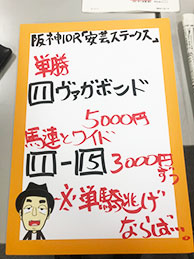 阪神10R「安芸ステークス」
単勝
11 ヴァガボンド
5000円
馬連とワイド
11-15 3000円
ずつ
※単騎逃げ
ならば…